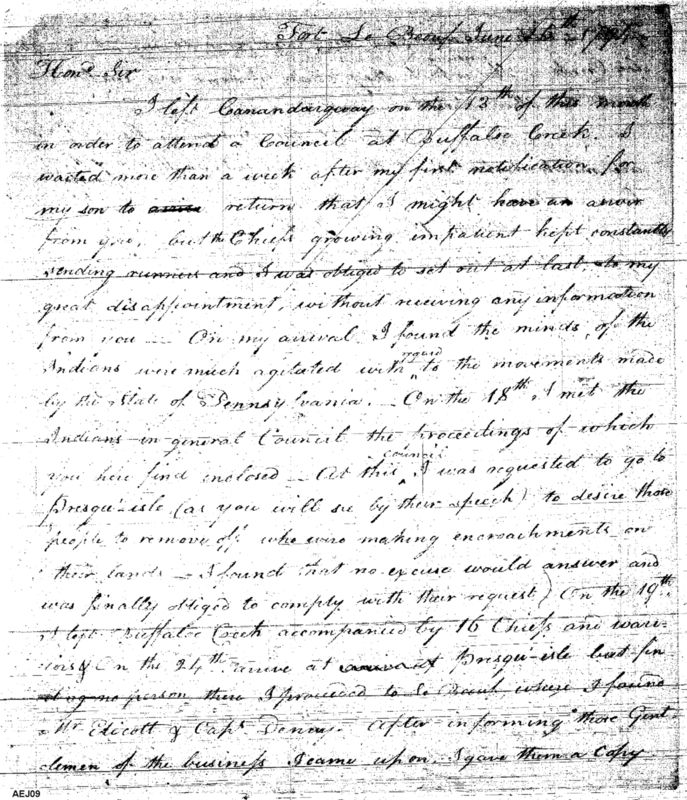 Fort Le Boeuf June 26th 1794
Hond. Sir
I left Canandarquay on the 13th of this month
in order to attend a Council at Buffaloe Creek. I
waited more than a week after my first notification for
my son to return that I might have an answr
from you, but the Chiefs growing impatient kept constantly
sending runners and I was obliged to set out at last, to my
great disappointment, without receiving any information
from you — On my arrival I found the minds of the
Indians were much agitated with regard to the movements made
by the State of Pennsylvania. — On the 18th I met the
Indians in general Council the proceedings of which
you here find enclosed — At this Council I was requested to go to
Presqu-isle (as you will see by their speech) to desire those
people to remove off who were making encroachments on
their lands — I found that no excuse would answer and
was finally obliged to comply with their request) On the 19th
I left Buffaloe Creek accompanied by 16 Chiefs and warr-
iors & On the 24th arrive at Presqu-isle but fin
ding no person there I proceeded to Le Boeuf where I found
Mr Elicott & Capt Denny. After informing those Gent
elemen of the business I came upon, I gave them a Copy
AEJ09